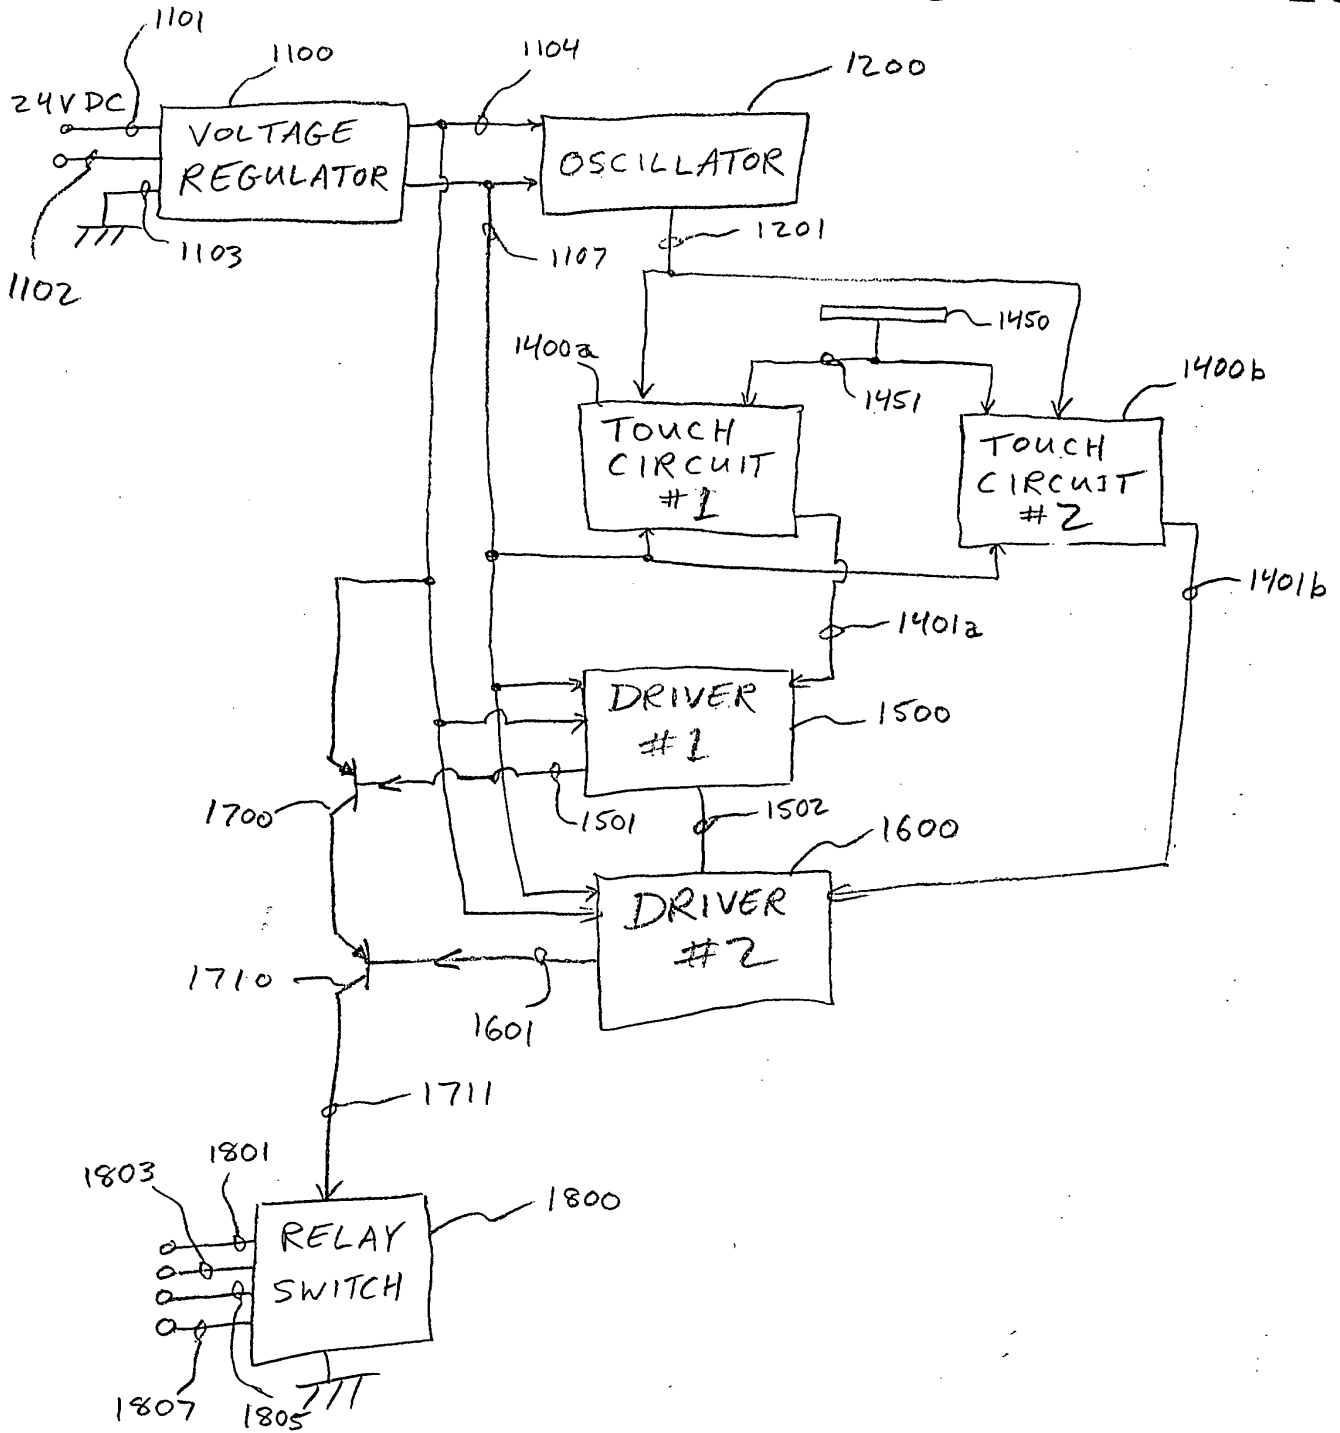 1101
1100
1104
1200
24VDC
VOLTAGE
REGULATOR
OSCILLATOR
1102
1103
1107
1201
1450
1400a
1451
1400b
TOUCH
CIRCUIT
#1
TOUCH
CIRCUIT
#2
1401b
1401a
DRIVER
#1
1500
1700
1501
1502
1600
DRIVER
#2
1710
1601
1711
1801
1803
1800
RELAY
SWITCH
1807
1805